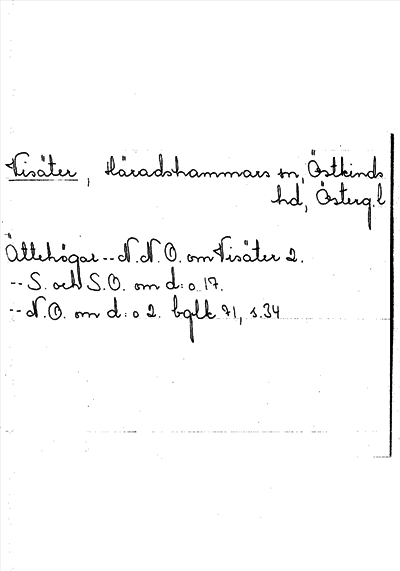 Visäter, Häradshammars sn, Östkinds
hd, Österg.l
Ättehögar -- N.N.O. om Visäter 2.
-- S. och S.O. om d:o 17.
-- N.O. om d:o 2. bglk 71, s.34